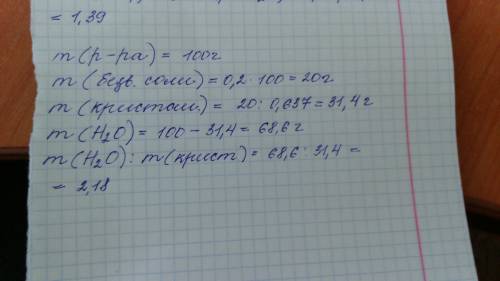 = 1,39
m (р-ра) = 100г
m (безв. соли) = 0,2 · 100 = 20г
m (кристал) = 20 : 0,637 = 31,4 г
m (H2O) = 100 - 31,4 = 68,6 г
m (H2O) : m (крист) = 68,6 : 31,4 =
= 2,18